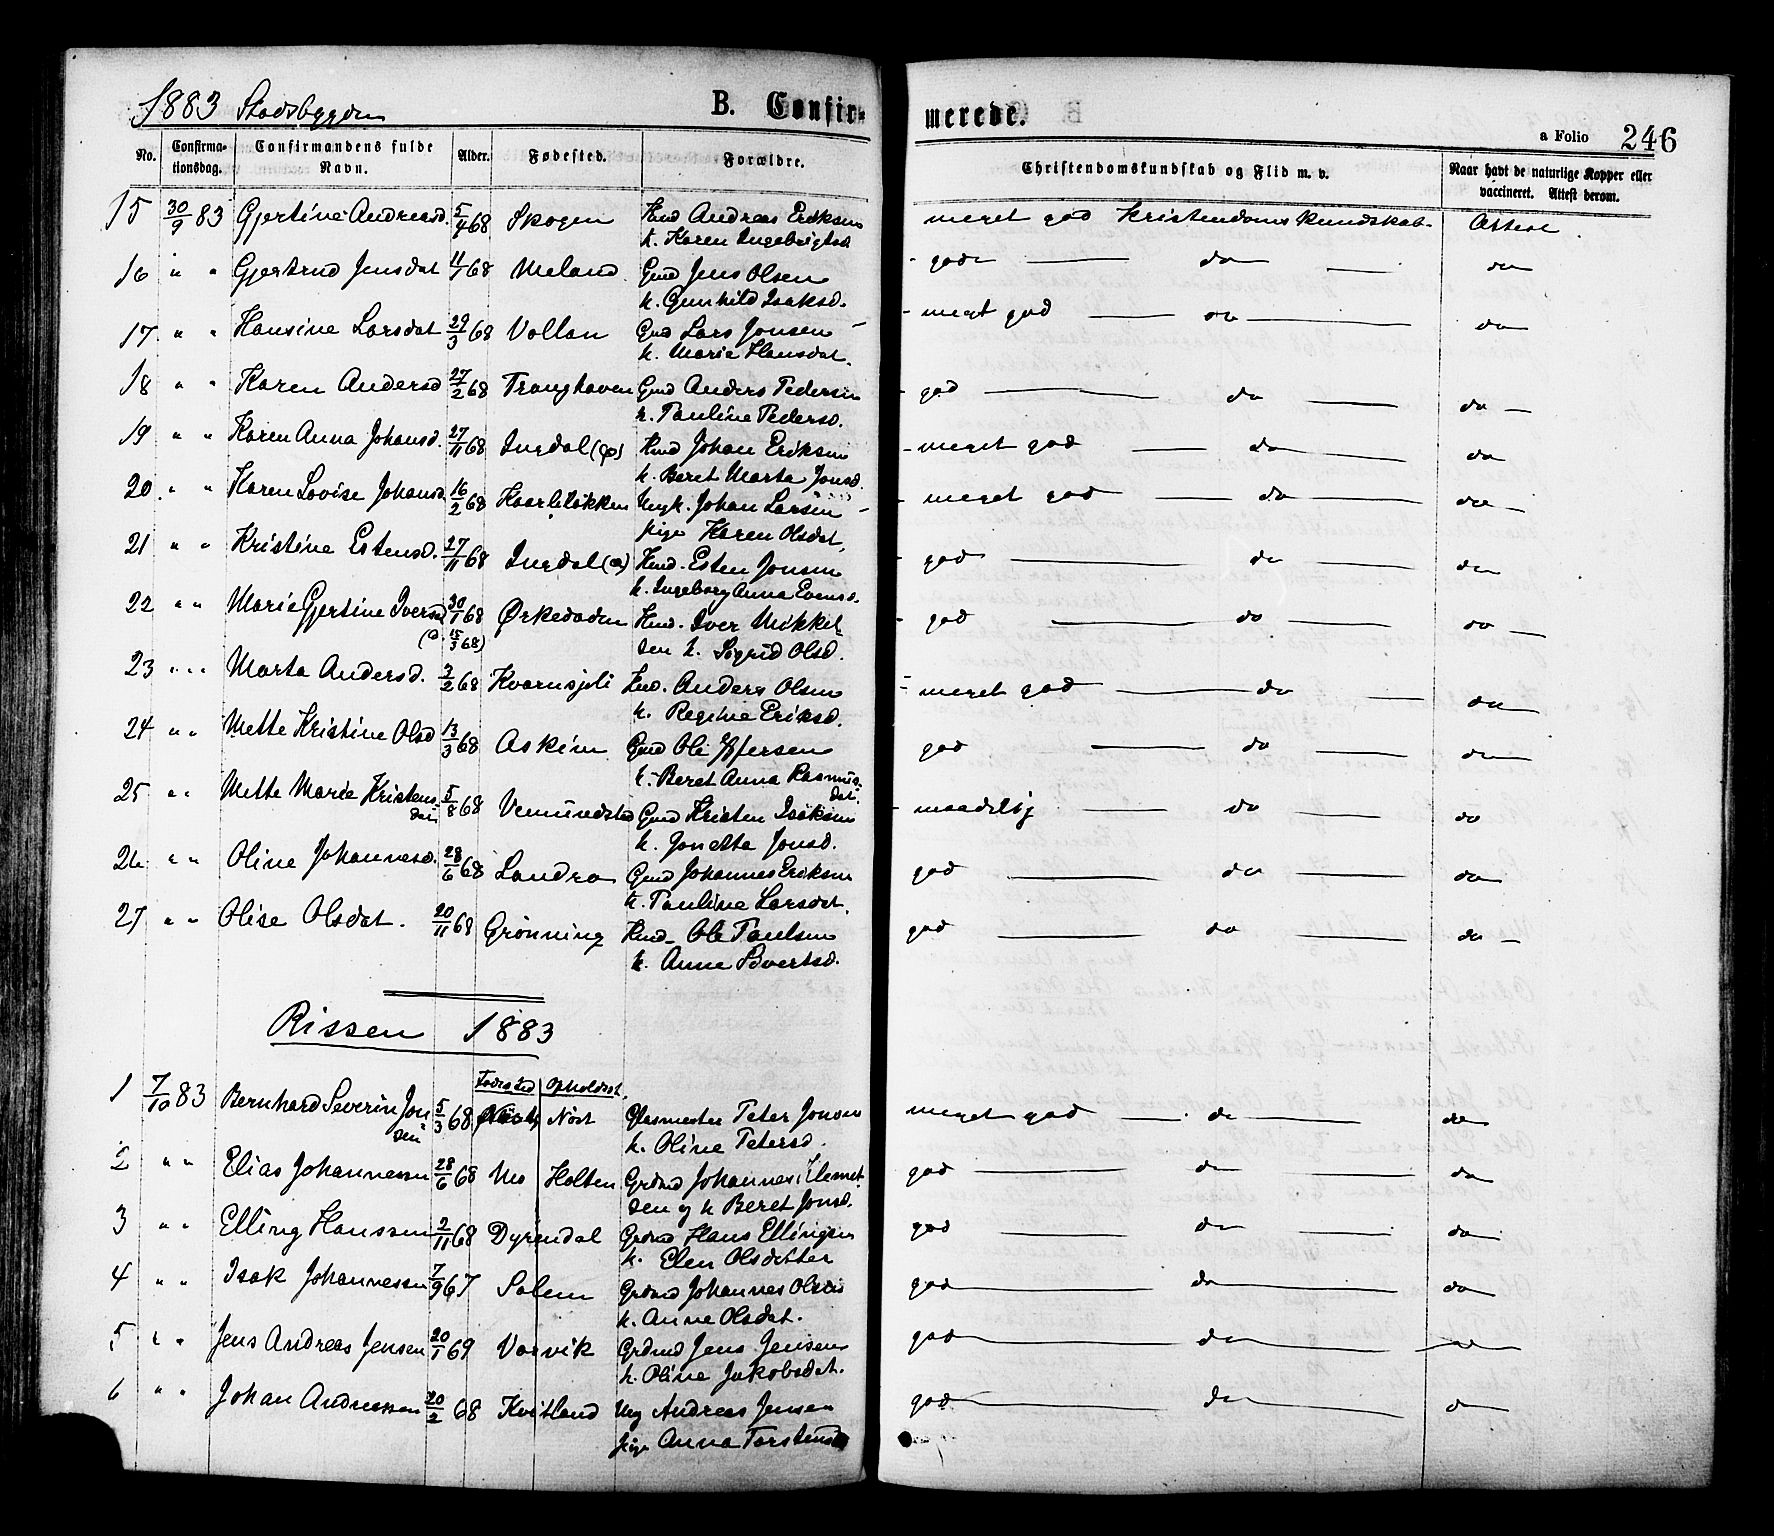 1883 Stadsbygden B. Confir- merede. a Folio 246
No. Confirma- tionsdag. Confirmandens fulde Navn. Alder. Fødested. Forældre. Christendomskundskab og Flid m. v. Naar havt de naturlige Kopper eller vaccineret. Attest derom.
15 30/9 83 Gjertine Andreasd. 5/4 68 Skogen Hmd Andreas Eriksen - meget god Kristendoms kundskab. Attest.
h. Karen Ingebrigtsd.
16 " " Gjertrud Jensdat 11/1 68 Meland Gmd Jens Olsen - god do do
h. Gunhild Isaksd.
17 " " Hansine Larsdat 29/3 68 Vollan Gmd Lars Jonsen - meget god do do
h. Marie Hansdat.
18 " " Karen Andersd 27/2 68 Tranghaven Gmd Anders Pedersen - god do do
h. Pauline Pedersd.
19 " " Karen Anna Johansd. 27/11 68 Ingdal Hmd Johan Eriksen - meget god do do
h. Beret Marta Jonsd.
20 " " Karen Lovise Johansd. 16/2 68 Haarletøkken Ungk. Johan Larsen - meget god do do
pige Karen Olsdat,
21 " " Kristine Estensd. 27/11 68 Ingdal Hmd. Esten Jonsen - god do do
h. Ingeborg Anna Evensd.
22 " " Marie Gjertine Iversd 30/1 68 Ørkedaden Hmd. Iver Mikkel- - god do do
(d. 15/3 68) sen h. Sigrid Olsd.
23 " " Marta Andersd. 2/2 68 Kvarnsjeli Hmd. Anders Olsen - meget god do do
h. Regine Eriksd.
24 " " Mette Kristine Olsd 13/3 68 Askim Gmd Ole Ejfersen god do do
h. Beret Anna Rasmus-
dat.
25 " " Mette Marie Kristens- 5/8 68 Vemundstad Gmd Kristen Isaksen - maadelig do do
dat h. Jonetta Jonsd.
26 " " Oline Johannesd. 28/6 68 Landro Gmd Johannes Eriksen god do do
h. Pauline Larsdat.
27 " " Olise Olsdat. 20/11 68 Grønning Hmd. Ole Paulsen god do do
h. Anne Sivertsd.
Rissen 1883
Fødested Opholdsst.
1 7/10 83 Bernhard Severin Jon- 5/3 68 Nøst Glasmester Peter Jonsen meget god do do
sen h. Oline Petersd.
2 " " Elias Johannessen 28/6 68 Mo Holten Grdmd Johannes Klemet- god do do
sen og h Beret Jonsd.
3 " " Elling Hanssen 2/11 68 Dyrendal Grdmd Hans Ellingsen god do do
h. Elen Olsdatter
4 " " Isak Johannessen 7/9 67 Salem Grdmd Johannes Olsen god do do
h. Anne Olsdat.
5 " " Jens Andreas Jensen 20/1 69 Varvik Grdmd Jens Jensen god do do
h. Oline Jakobsdat.
6 " " Johan Andreassen 20/2 68 Kvitland Ung Andreas Jensen god do do
pige Anna Torstensd